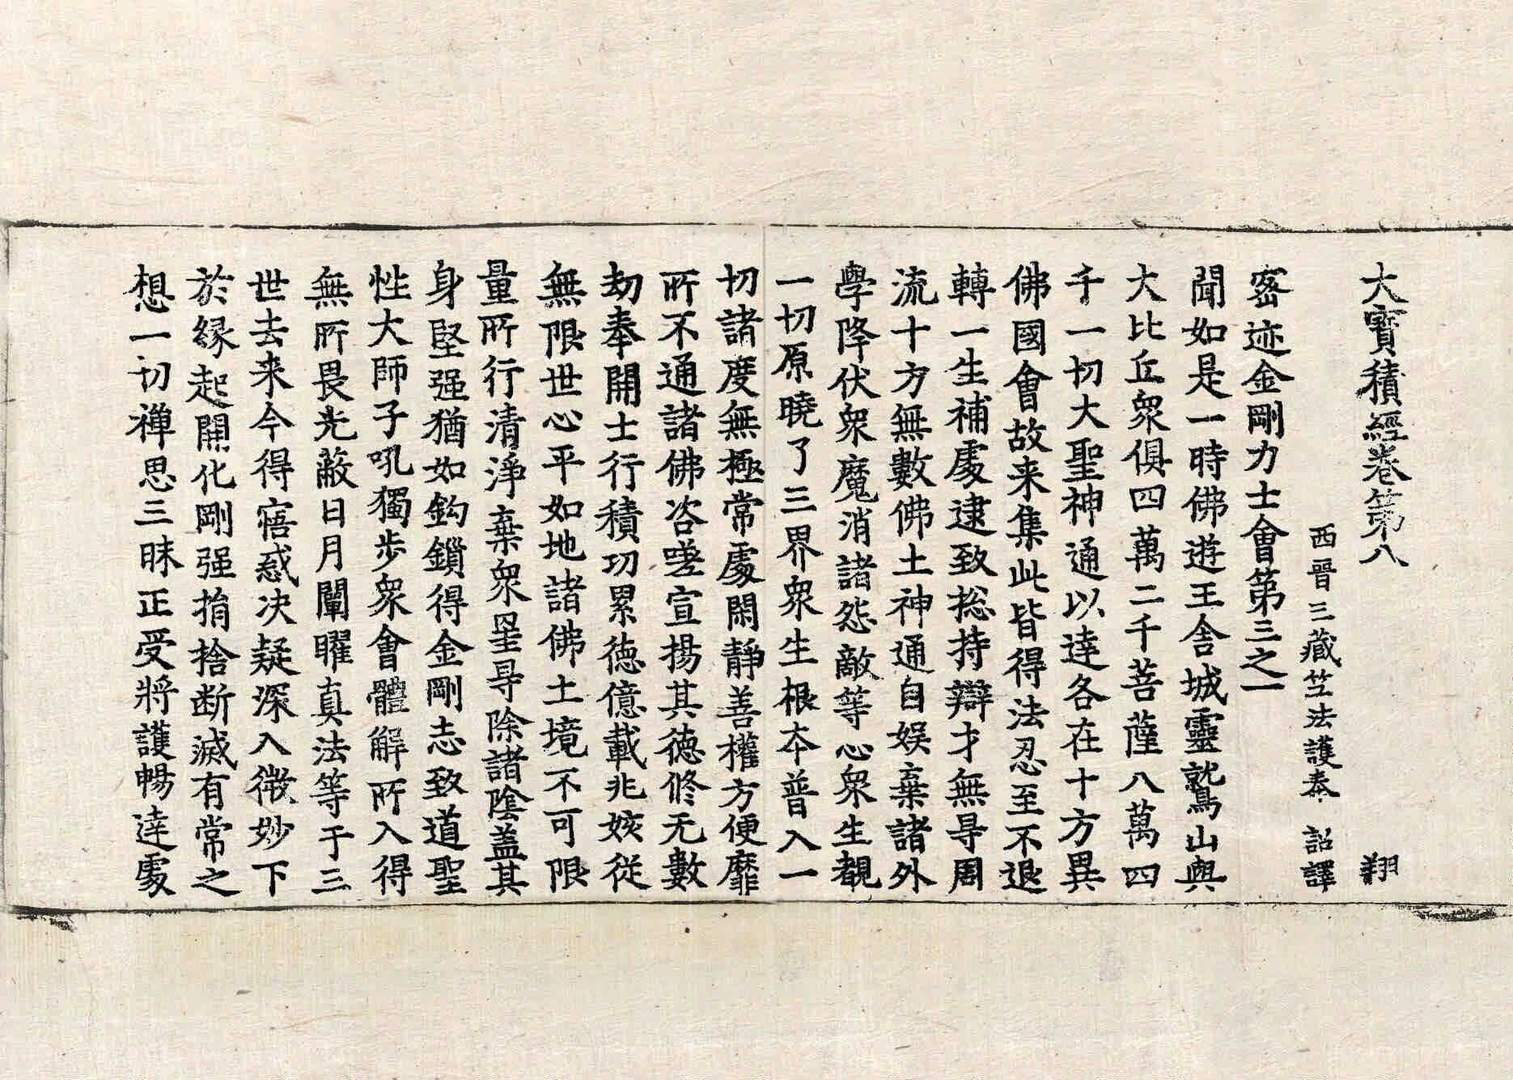 大寶積經卷第八 翔
西晉三藏竺法護奉 詔譯
密迹金剛力士會第三之一
聞如是一時佛遊王舍城靈鷲山與
大比丘衆俱四萬二千菩薩八萬四
千一切大聖神通以逹各在十方異
佛國會故来集此皆得法忍至不退
轉一生補處逮致捴持辯才無㝵周
流十方無數佛土神通自娱棄諸外
學降伏衆魔消諸怨敵等心衆生覩
一切原曉了三界衆生根夲普入一
切諸度無極常處閑靜善權方便靡
所不通諸佛咨嗟宣揚其德修无數
劫奉開士行積功累徳億載兆姟從
無限世心平如地諸佛土境不可限
量所行清淨棄衆罣㝵除諸陰盖其
身堅强猶如鈎鎖得金剛志致道聖
性大師子吼獨步衆會體解所入得
無所畏光蔽日月闡曜真法等于三
世去来今得寤惑决疑深入微妙下
於縁起開化剛强捐捨断滅有常之
想一切禅思三昧正受將護暢逹處